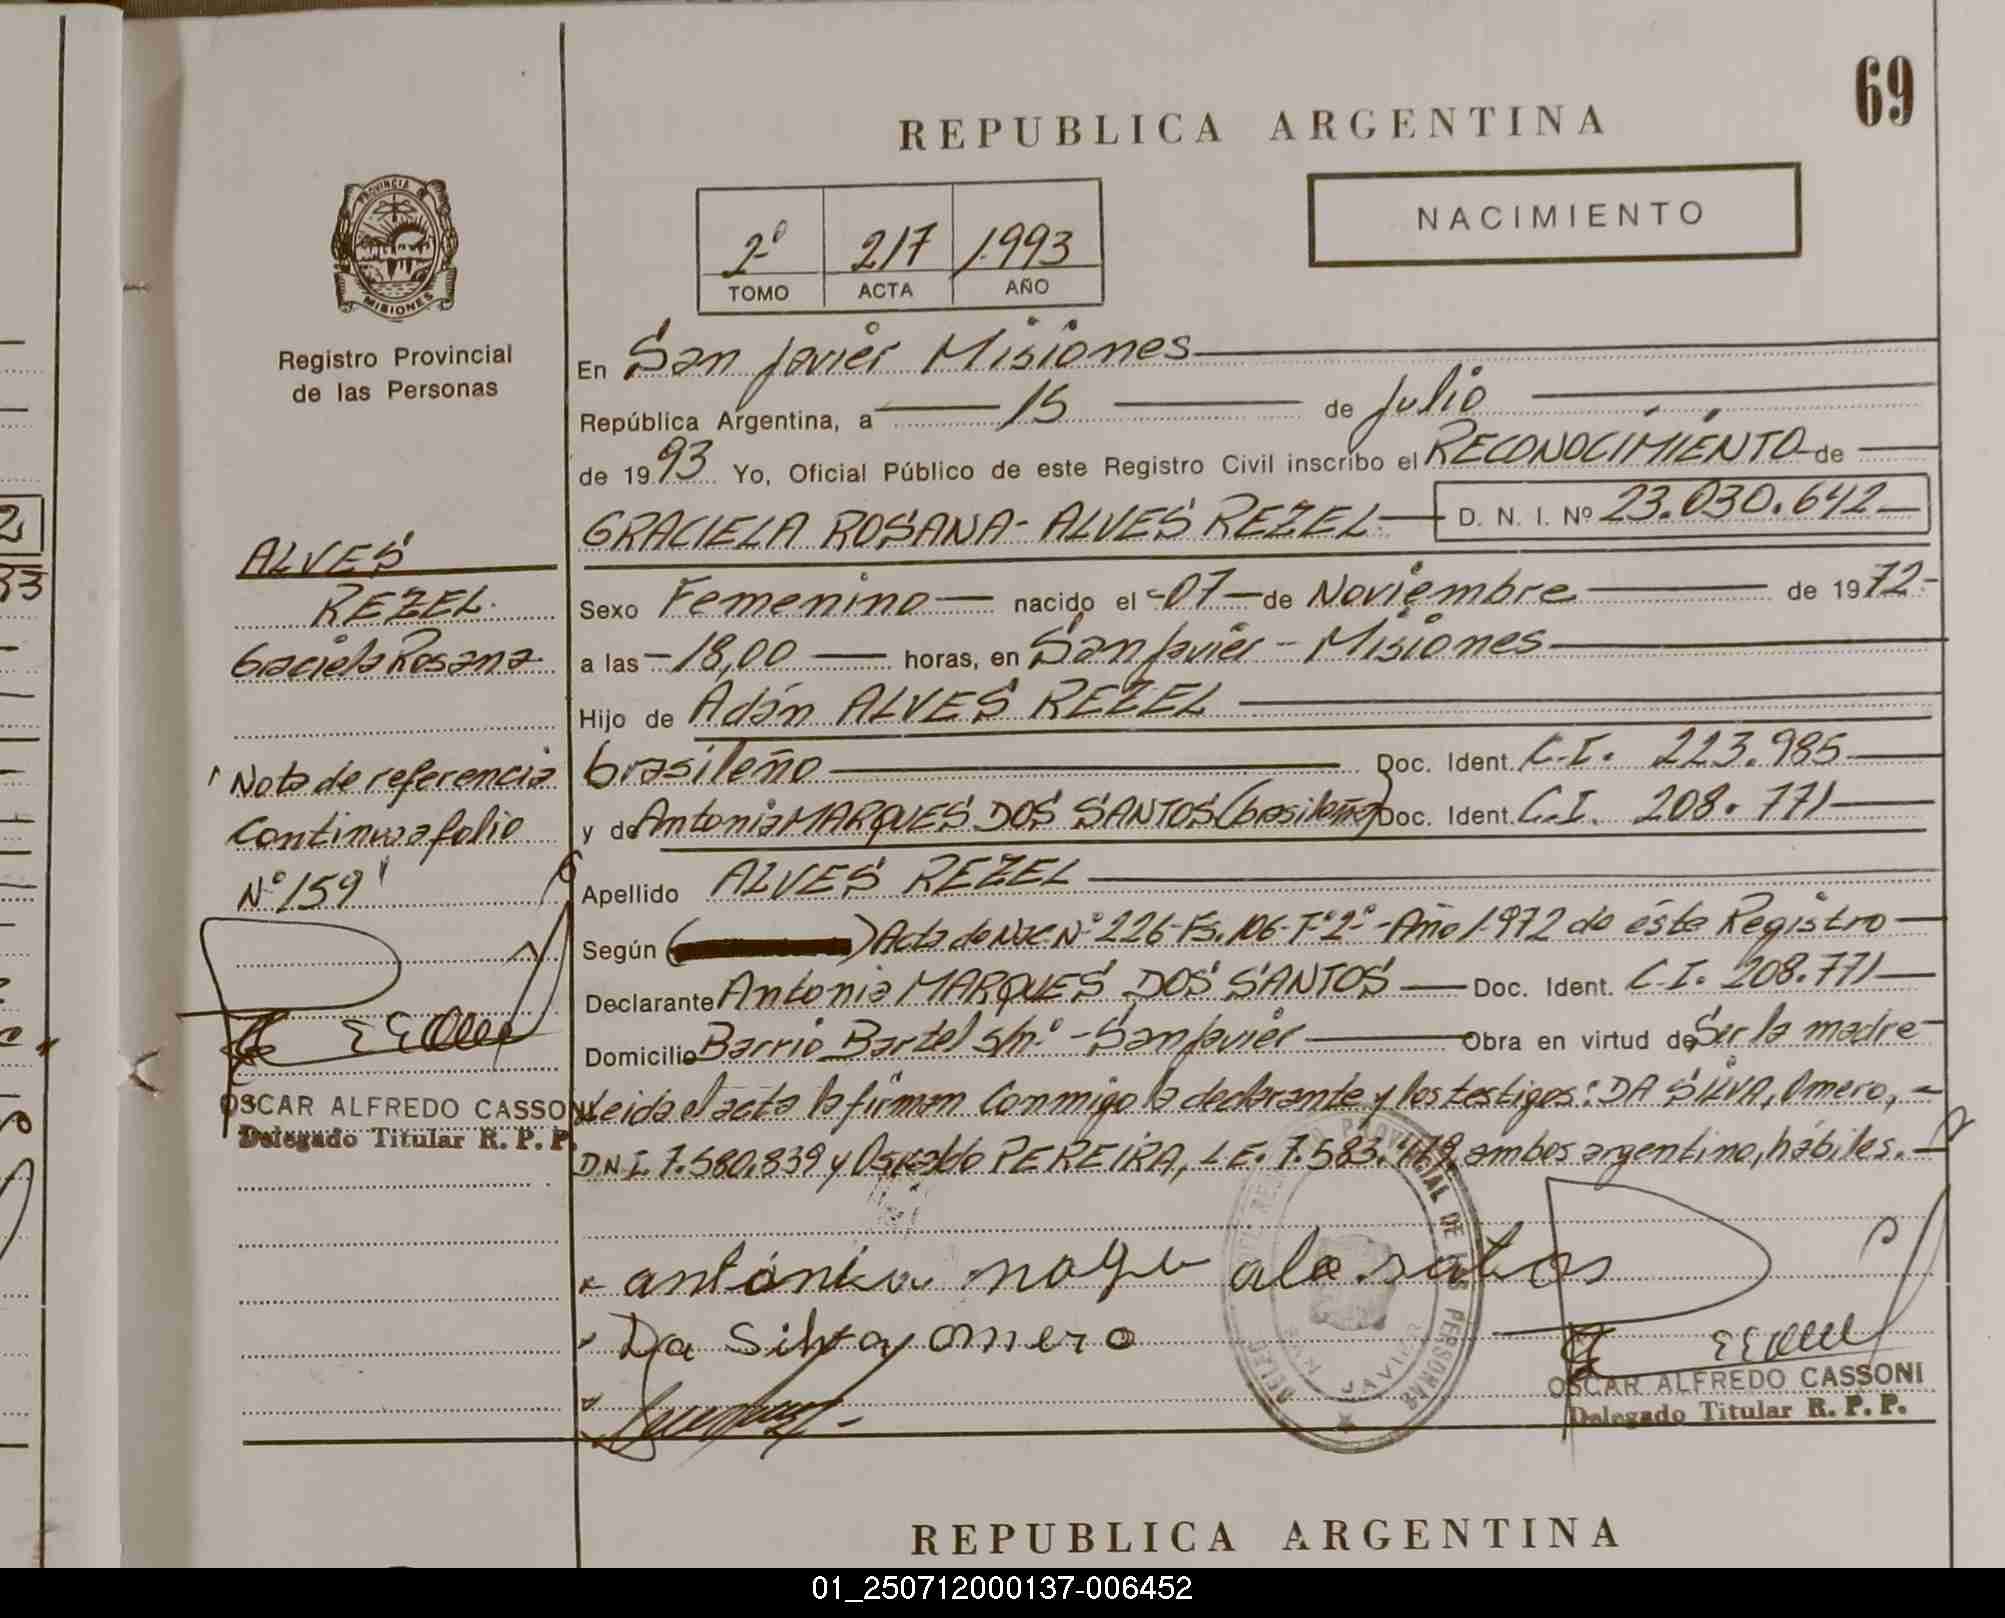 69
REPUBLICA ARGENTINA
NACIMIENTO
2º 217 1.993
TOMO ACTA AÑO
PROVINCIA DE
MISIONES
Registro Provincial
de las Personas
En San Javier Misiones
República Argentina, a 15 de Julio
de 1993 Yo, Oficial Público de este Registro Civil inscribo el RECONOCIMIENTO de
GRACIELA ROSANA- ALVES REZEL D. N. I. Nº 23.030.642
Sexo Femenino nacido el -07- de Noviembre de 1972-
a las -18,00 horas, en San Javier - Misiones
Hijo de Adán ALVES REZEL
brasileño Doc. Ident. C.I. 223.985
y de Antonia MARQUES DOS SANTOS (brasileña) Doc. Ident. C.I. 208.771
Apellido ALVES REZEL
Según ( ) Acta de Nac Nº 226-Fs. 106-Tº2º-Año 1.972 de éste Registro
Declarante Antonia MARQUES DOS SANTOS Doc. Ident. C.I. 208.771
Domicilio Barrio Bartel s/nº - San Javier Obra en virtud de Ser la madre
Leida el acta la firman conmigo la declarante y los testigos: DA SILVA, Omero,
D.N.I. 7.580.839 y Osvaldo PEREIRA, L.E. 7.583.479, ambos argentino, hábiles.
ALVES
REZEL.
Graciela Rosana
"Nota de referencia
Continua a folio
Nº 159"
OSCAR ALFREDO CASSONI
Delegado Titular R. P. P.
antónia
Da Silva omero
OSCAR ALFREDO CASSONI
Delegado Titular R. P. P.
REPUBLICA ARGENTINA
01_250712000137-006452